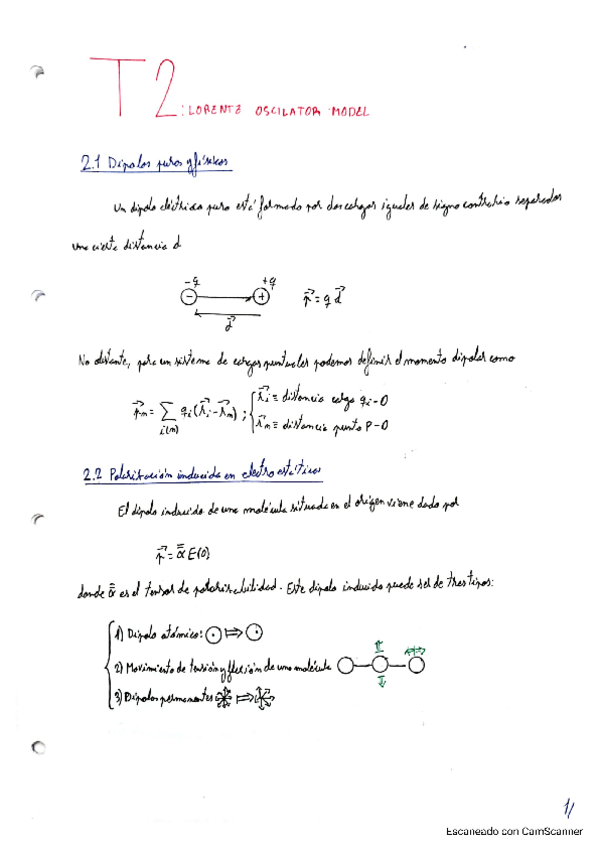 T2: LORENTE OSCILATOR MODEL
2.1 Dipolos puros y físicos
Un dipolo eléctrico puro está formado por dos cargas iguales de signo contrario separadas
una cierta distancia d
-q +q
- + p⃗ = q d⃗
d⃗
No obstante, para un sistema de cargas puntuales podemos definir el momento dipolar como
p⃗m = Σ i(m) qi (r⃗i - r⃗m) ; { r⃗i ≡ distancia carga qi-O
r⃗m ≡ distancia punto P-O
2.2 Polarización inducida en electroestática
El dipolo inducido de una molécula situada en el origen viene dado por
p⃗ = α̿ E(0)
donde α̿ es el tensor de polarizabilidad. Este dipolo inducido puede ser de tres tipos:
1) Dipolo atómico: ⇒
2) Movimiento de tensión y flexión de una molécula
3) Dipolos permanentes ⇒
1/
Escaneado con CamScanner